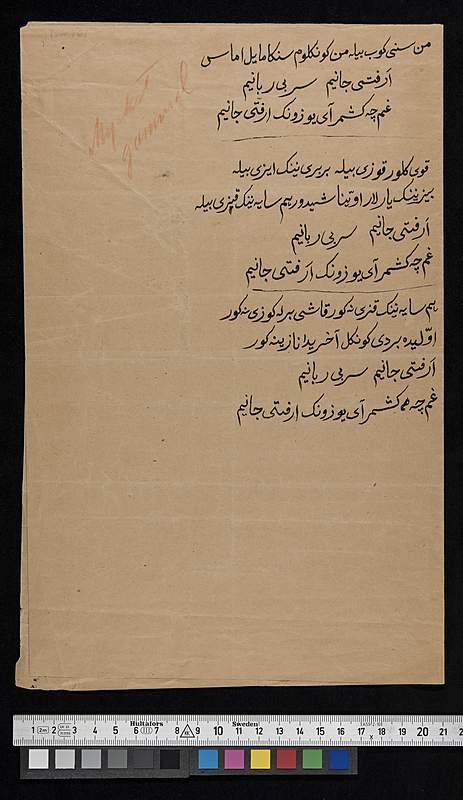 من سنی کوب بیله من کونکلوم سنکا مایل اماس
ارفتی جانیم سربی ربانیم
غمچه کشمر آی یوزونک ارفتی جانیم
قوی کلور قوزی بیله بربری نینک ایزی بیله
بیزنینک یارلار اوتینا شیدور هم سایه نینک قیزی بیله
ارفتی جانیم سربی ربانیم
غمچه کشمر آی یوزونک ارفتی جانیم
هم سایه نینک قیزی نه کور قاشی برله کوزی نه کور
اوّلیده بردی کونکل آخریدا نازینه کور
ارفتی جانیم سربی ربانیم
غمچه کشمر آی یوزونک ارفتی جانیم
Hultafors Sweden
1 2 3 4 5 6 7 8 9 10 11 12 13 14 15 16 17 18 19 20 21